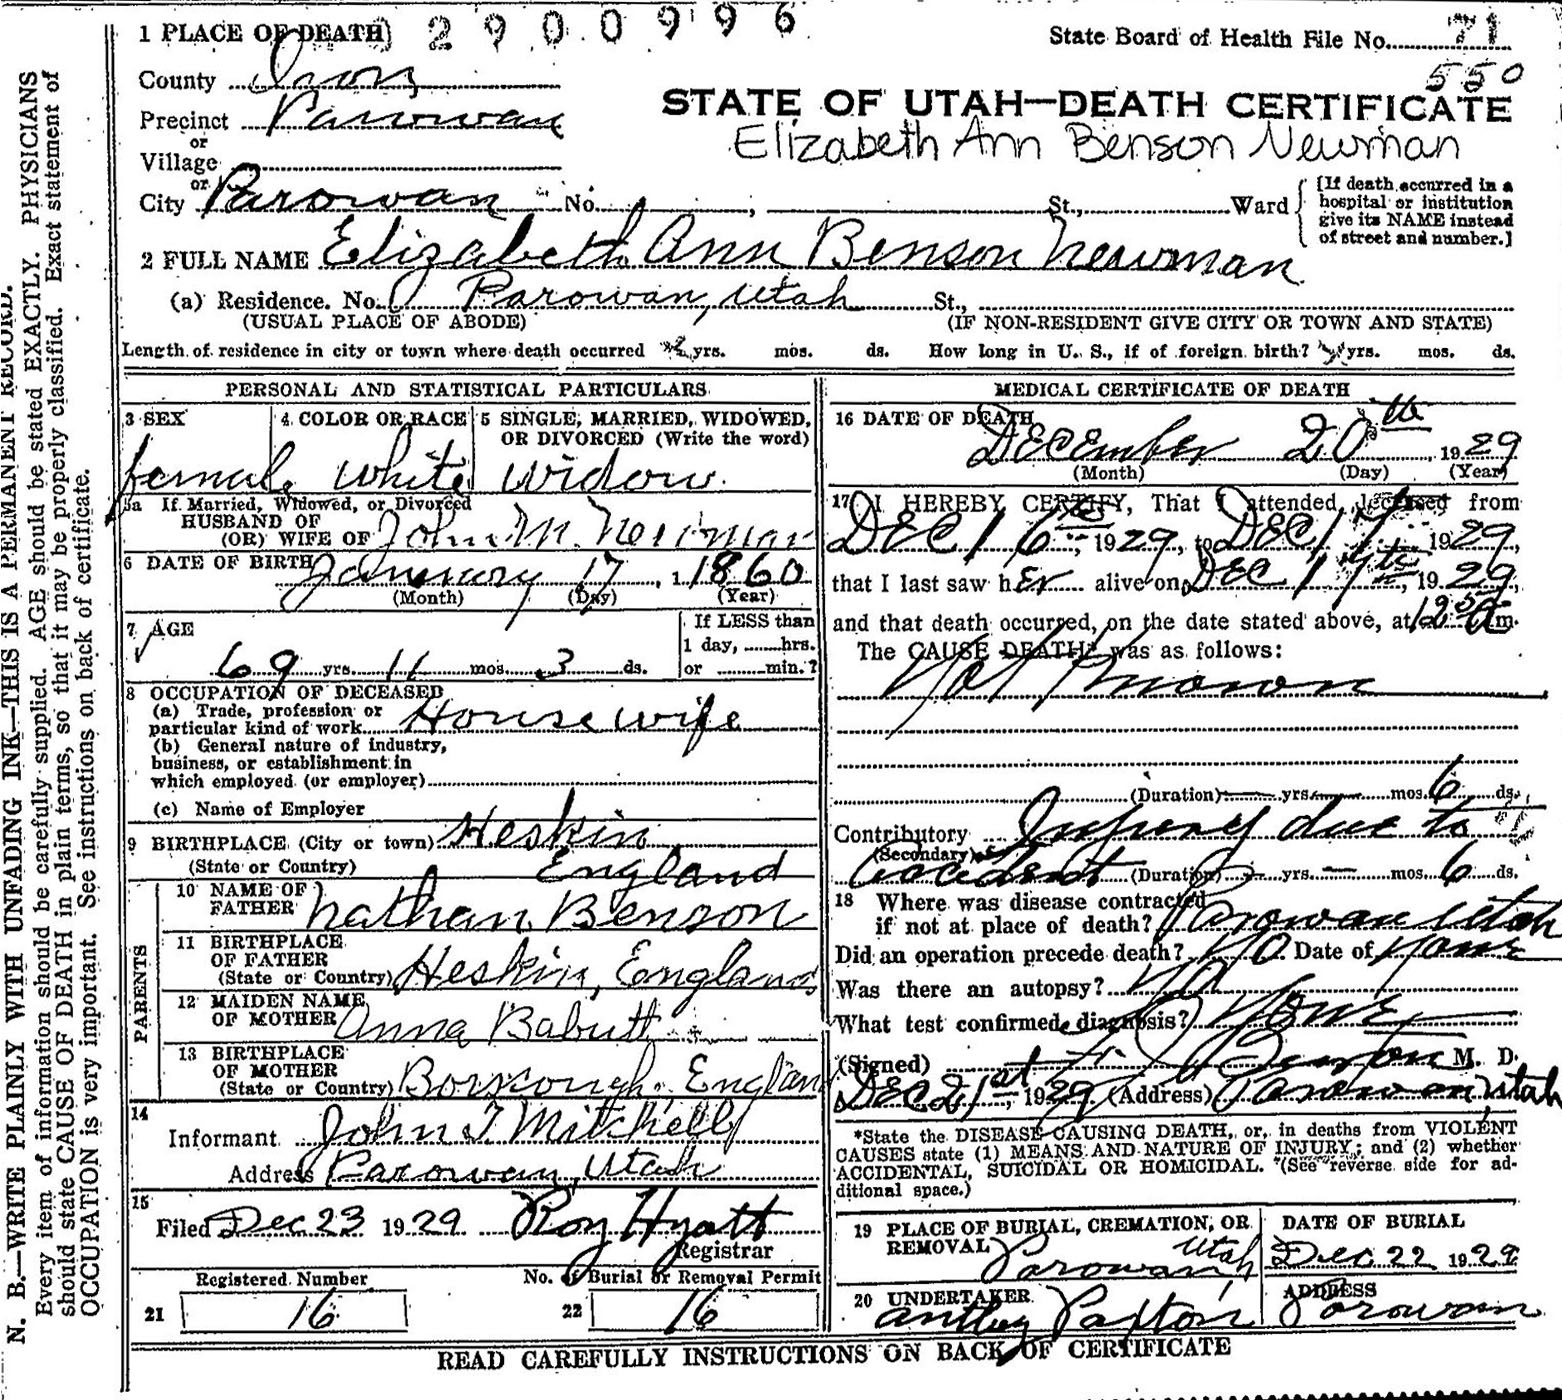 2900996
1 PLACE OF DEATH
State Board of Health File No. 71
550
County Iron
STATE OF UTAH—DEATH CERTIFICATE
Precinct Parowan
Elizabeth Ann Benson Newman
or
Village
or
City Parowan No. , St., Ward
[If death occurred in a
hospital or institution
give its NAME instead
of street and number.]
2 FULL NAME Elizabeth Ann Benson Newman
(a) Residence. No. Parowan, Utah St.,
(USUAL PLACE OF ABODE) (IF NON-RESIDENT GIVE CITY OR TOWN AND STATE)
Length of residence in city or town where death occurred yrs. mos. ds. How long in U. S., if of foreign birth? yrs. mos. ds.
PERSONAL AND STATISTICAL PARTICULARS
3 SEX 4 COLOR OR RACE 5 SINGLE, MARRIED, WIDOWED,
OR DIVORCED (Write the word)
female white widow.
5a If Married, Widowed, or Divorced
HUSBAND OF
(OR) WIFE OF John M. Newman
6 DATE OF BIRTH January 17, 1 1860
(Month) (Day) (Year)
7 AGE
If LESS than
1 day, hrs.
69 yrs 11 mos. 3 ds. or min.?
8 OCCUPATION OF DECEASED
(a) Trade, profession or
particular kind of work Housewife
(b) General nature of industry,
business, or establishment in
which employed (or employer)
(c) Name of Employer
9 BIRTHPLACE (City or town) Heskin
(State or Country) England
PARENTS
10 NAME OF
FATHER Nathan Benson
11 BIRTHPLACE
OF FATHER
(State or Country) Heskin, England
12 MAIDEN NAME
OF MOTHER Anna Babutt
13 BIRTHPLACE
OF MOTHER
(State or Country) Borscough, England
14
Informant John T. Mitchell
Address Parowan, Utah
15
Filed Dec 23 1929 Roy Hyatt
Registrar
Registered Number No. of Burial or Removal Permit
21 16 22 16
MEDICAL CERTIFICATE OF DEATH
16 DATE OF DEATH
December 20th, 1929
(Month) (Day) (Year)
17 I HEREBY CERTIFY, That I attended deceased from
Dec 16th, 1929, to Dec 17 1929,
that I last saw her alive on Dec 17th, 1929,
and that death occurred, on the date stated above, at m.
The CAUSE DEATH* was as follows:
Not Known
(Duration) yrs. mos. 6 ds.
Contributory Injury due to
(Secondary)
Accident (Duration) yrs. — mos. 6 ds.
18 Where was disease contracted
if not at place of death? Parowan Utah
Did an operation precede death? No. Date of None
Was there an autopsy? No
What test confirmed diagnosis? None
(Signed) Benson M. D.
Dec 21st, 1929 (Address) Parowan Utah
*State the DISEASE CAUSING DEATH, or, in deaths from VIOLENT
CAUSES state (1) MEANS AND NATURE OF INJURY; and (2) whether
ACCIDENTAL, SUICIDAL OR HOMICIDAL. (See reverse side for ad-
ditional space.)
19 PLACE OF BURIAL, CREMATION, OR
REMOVAL Parowan, Utah
DATE OF BURIAL
Dec 22 1929
20 UNDERTAKER
Anthny Paxton
ADDRESS
Parowan
READ CAREFULLY INSTRUCTIONS ON BACK OF CERTIFICATE
N. B.—WRITE PLAINLY WITH UNFADING INK—THIS IS A PERMANENT RECORD.
Every item of information should be carefully supplied. AGE should be stated EXACTLY. PHYSICIANS
should state CAUSE OF DEATH in plain terms, so that it may be properly classified. Exact statement of
OCCUPATION is very important. See instructions on back of certificate.